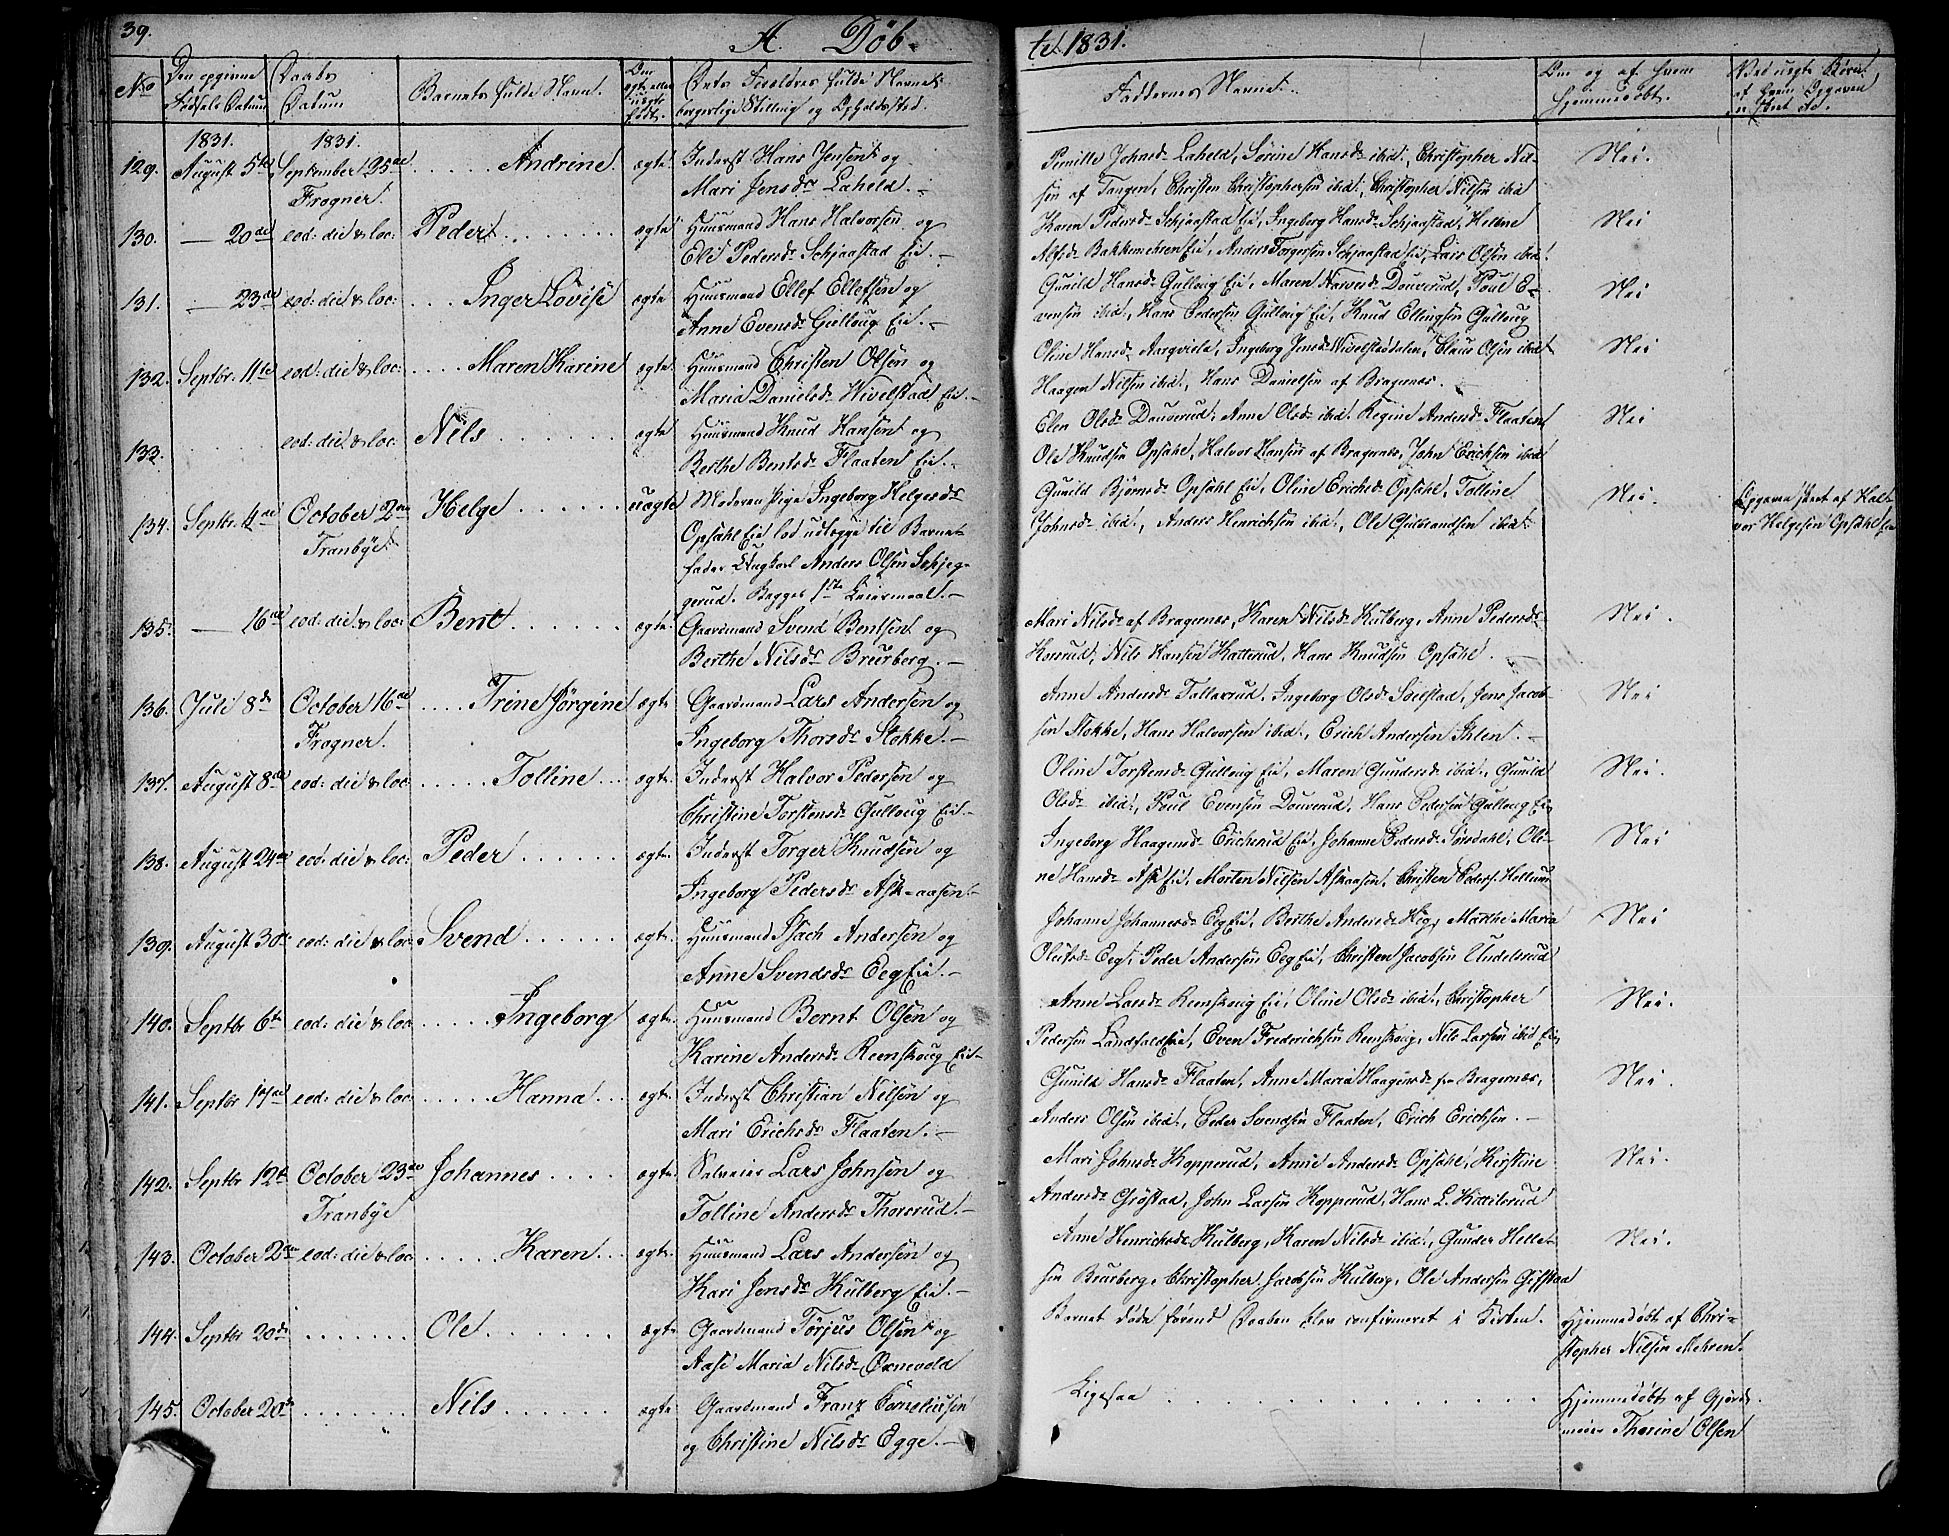 39.
A. Döb-
te. 1831.
No
Den opgivne
Fødsels Datum
Daabs
Datum
Barnets fulde Navn.
Om
ægte eller
uægte
født.
Dets Forældres fulde Navne
borgerlige Stilling og Opholdssted.
Faddernes Navne.
Om og af hvem
hjemmedøbt.
Ved uægte Børn,
af hvem Opgaven
er skeet
1831. 1831.
129. August 5te September 25de Andrine. ægte Inderst Hans Jensen og
Frogner. Mari Jensdr Laheld.
Pernille Johnsdr Laheld, Sørine Hansdr ibid., Christopher Nil-
sen af Tangen, Christen Christophersen ibid., Christopher Nilsen ibid
Nei.
130. — 20de eod: die & loc: Peder ægte Huusmand Hans Halvorsen og
Eli Pedersdr Schjaastad Eie.
Karen Pedersdr Schjaastad Eie, Ingeborg Hansdr Schjaastad, Helene
Alfsdr Bakkemehren Eie, Anders Torgersen Schjaastad Eie, Lars Olsen ibid.
Nei
131. — 23de eod: die & loc: Inger Lovise ægte Huusmand Ellef Ellefsen og
Anne Evensdr Gulloug Eie.
Gunild Hansdr Gulloug Eie, Maren Narvesdr Douverud, Poul E-
vensen ibid., Hans Pedersen Gulloug Eie, Knud Ellingsen Gulloug
Nei
132. Septbr. 11te eod: die & loc: Maren Karine ægte Huusmand Christen Olsen og
Maria Danielsdr Wivelstad Eie.
Oline Hansdr Aarqvisla, Ingeborg Jensdr Wivelstaddalen, Claus Olsen ibid
Haagen Nilsen ibid., Hans Danielsen af Bragernæs.
Nei
133. eod: die & loc: Nils ægte Huusmand Knud Hansen og
Berthe Bentsdr Flaaten Eie.
Elen Olsdr Douverud, Anne Olsdr ibid. Regine Andersdr Flaaten
Ole Knudsen Opsahl, Halvor Hansen af Bragernæs, John Erichsen ibid
Nei
134. Septbr. 4de October 2den Helge uægte Moderen Pige Ingeborg Helgesdr
Tranbye. Opsahl Eie lod udlægge til Barne-
fader Ungkarl Anders Olsen Schjeg-
gerud. Begges 1ste Leiermaal.
Gunild Bjørnsdr Opsahl Eie, Oline Erichsdr Opsahl, Tolline
Johnsdr ibid., Anders Henrichsen ibid., Ole Gulbrandsen ibid.
Nei.
Opgaven skeet af Hal-
vor Helgesen Opsahl Eie
135. — 16de eod: die & loc: Bent ægte Gaardmand Svend Bentsen og
Berthe Nilsdr Brurberg.
Mari Nilsdr af Bragernæs, Karen Nilsdr Kulberg, Anne Pedersdr
Korsrud, Nils Hansen Katterud, Hans Knudsen Opsahl.
Nei.
136. Juli 8de October 16de Trine Jørgine ægte Gaardmand Lars Andersen og
Frogner. Ingeborg Thorsdr Stokke.
Anne Andersdr Tallerud, Ingeborg Olsdr Solstad, Jens Jacob-
sen Stokke, Hans Halvorsen ibid., Erich Andersen Ihlen.
Nei
137. August 8de eod: die & loc: Tolline ægte Inderst Halvor Pedersen og
Christine Torstensdr Gulloug Eie.
Oline Torstensdr Gulloug Eie, Maren Gundersdr ibid., Gunild
Olsdr ibid., Poul Evensen Douverud, Hans Pedersen Gulloug Eie
Nei.
138. August 24de eod: die & loc: Peder ægte Inderst Torger Knudsen og
Ingeborg Pedersdr Askaasen.
Ingeborg Haagensdr Erichsrud Eie, Johanne Pedersdr Sørsdahl, Oli-
ne Hansdr Ask Eie, Morten Nilsen Askaasen, Christen Peders. Hellum
Nei
139. August 30te eod: die & loc: Svend ægte Huusmand Isach Andersen og
Anne Svendsdr Eeg Eie.
Johanne Johannesdr Eeg Eie, Berthe Andersdr Heg, Marthe Maria
Olsdr Eeg, Peder Andersen Eeg Eie, Christen Jacobsen Undelsrud
Nei
140. Septbr 6te eod: die & loc: Ingeborg ægte Huusmand Bernt Olsen og
Karine Andersdr Reenskoug Eie
Anne Larsdr Reenskoug Eie, Oline Olsdr ibid., Christopher
Pedersen Landfald Eie, Even Frederichsen Reenskoug, Nils Larsen ibid Eie
Nei.
141. Septbr 17de eod: die & loc: Hanna ægte Inderst Christian Nilsen og
Mari Erichsdr Flaaten.
Gunild Hansdr Flaaten, Anne Maria Haagensdr fra Bragernæs,
Anders Olsen ibid., Peder Svendsen Flaaten, Erich Erichsen.
Nei.
142. Septbr 12te October 23de Johannes ægte Selveier Lars Johnsen og
Tranbye Tolline Andersdr Thorsrud.
Mari Johnsdr Kopperud, Anne Andersdr Opsahl, Kirstine
Andersdr Gröstad, John Larsen Kopperud, Hans L. Kittilsrud
Nei.
143. October 2den eod: die & loc: Karen ægte Huusmand Lars Andersen og
Kari Jensdr Kulberg Eie.
Anne Henrichsdr Kulberg, Karen Nilsdr ibid., Gunder Helle-
sen Brurberg, Christopher Jacobsen Kulberg, Ole Andersen Gifstad
Nei.
144. Septbr 20de Ole ægte Gaardmand Torjus Olsen og
Aase Maria Nilsdr Oxnevold
Barnet døde førend Daaben blev confirmeret i Kirken.
Hjemmedøbt af Chri-
stopher Nilsen Mehren.
145. October 20de Nils ægte Gaardmand Franz Corneliusen
og Christine Nilsdr Egge.
Ligesaa
Hjemmedøbt af Gjorde-
moder Thorine Olsen